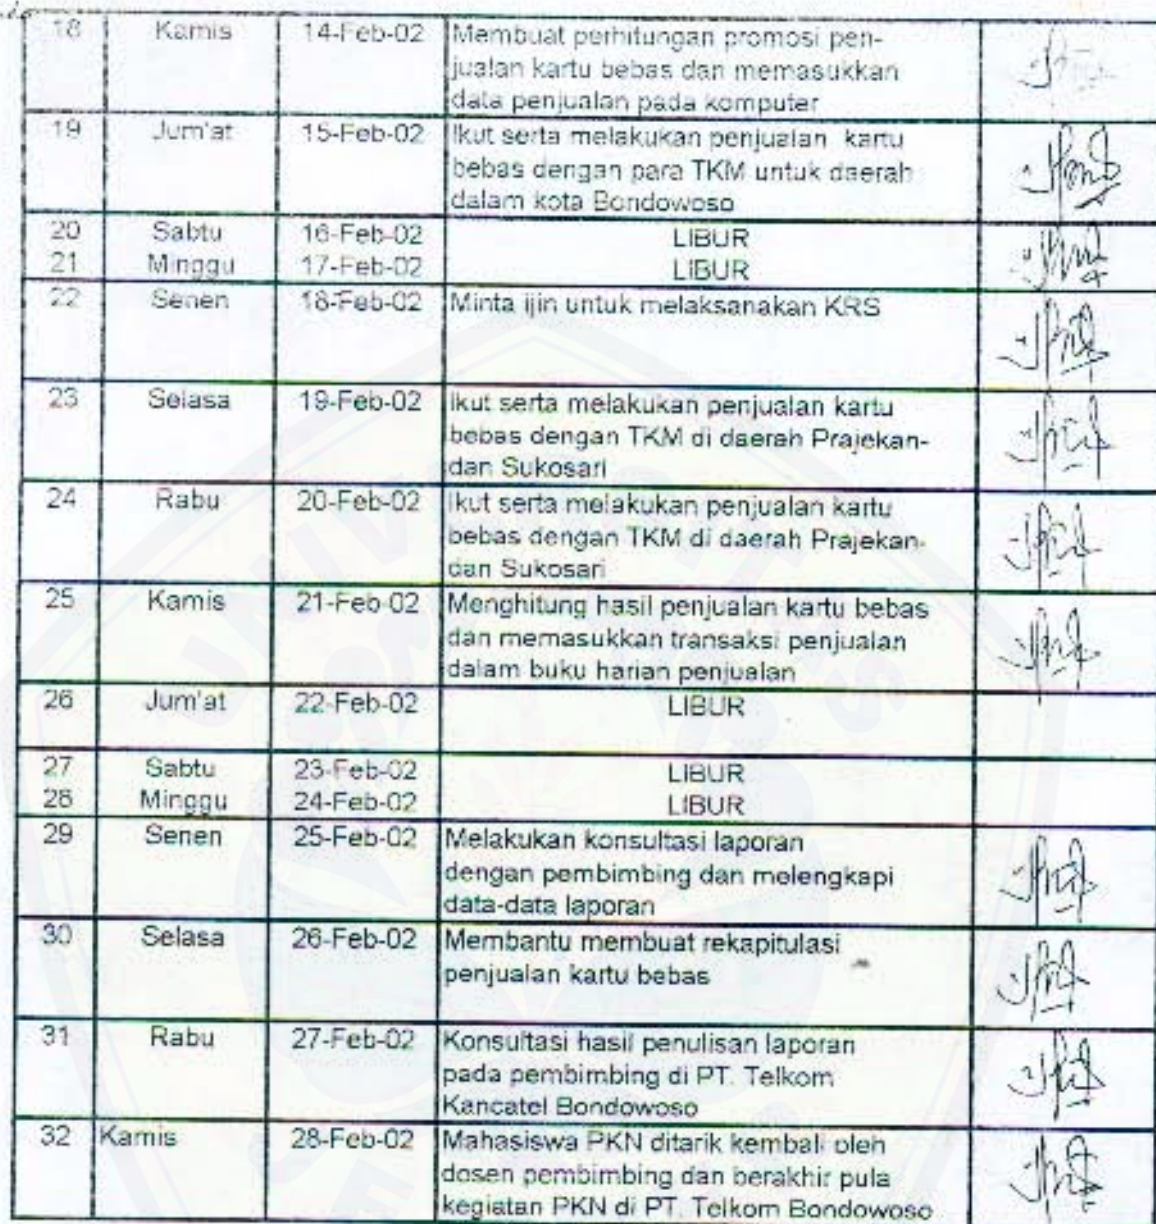 18 Kamis 14-Feb-02 Membuat perhitungan promosi pen-
jualan kartu bebas dan memasukkan
data penjualan pada komputer
19 Jum'at 15-Feb-02 Ikut serta melakukan penjualan kartu
bebas dengan para TKM untuk daerah
dalam kota Bondowoso
20 Sabtu 16-Feb-02 LIBUR
21 Minggu 17-Feb-02 LIBUR
22 Senen 18-Feb-02 Minta ijin untuk melaksanakan KRS
23 Selasa 19-Feb-02 Ikut serta melakukan penjualan kartu
bebas dengan TKM di daerah Prajekan-
dan Sukosari
24 Rabu 20-Feb-02 Ikut serta melakukan penjualan kartu
bebas dengan TKM di daerah Prajekan-
dan Sukosari
25 Kamis 21-Feb-02 Menghitung hasil penjualan kartu bebas
dan memasukkan transaksi penjualan
dalam buku harian penjualan
26 Jum'at 22-Feb-02 LIBUR
27 Sabtu 23-Feb-02 LIBUR
28 Minggu 24-Feb-02 LIBUR
29 Senen 25-Feb-02 Melakukan konsultasi laporan
dengan pembimbing dan melengkapi
data-data laporan
30 Selasa 26-Feb-02 Membantu membuat rekapitulasi
penjualan kartu bebas
31 Rabu 27-Feb-02 Konsultasi hasil penulisan laporan
pada pembimbing di PT. Telkom
Kancatel Bondowoso
32 Kamis 28-Feb-02 Mahasiswa PKN ditarik kembali oleh
dosen pembimbing dan berakhir pula
kegiatan PKN di PT. Telkom Bondowoso